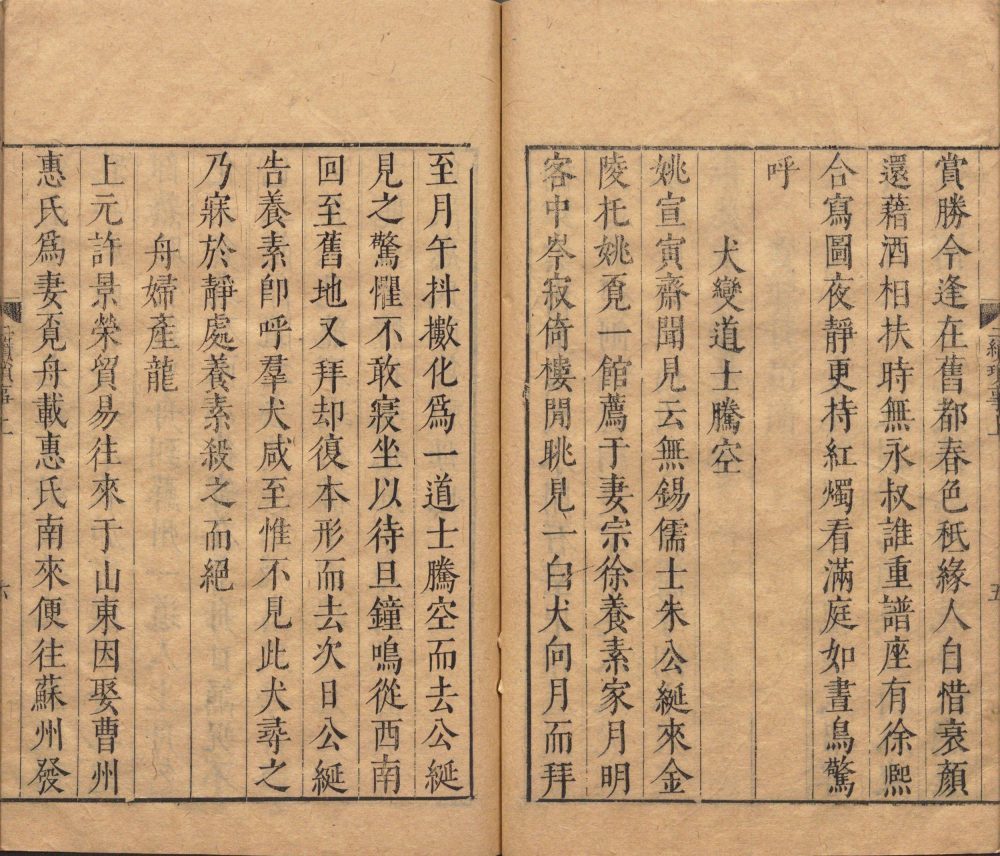 賞勝今逢在舊都春色秪緣人白惜衰顏
還藉酒相扶時無永叔誰重譜座有徐熙
合寫圖夜靜更持紅燭看滿庭如晝鳥驚
呼
犬變道士騰空
姚宣寅齋聞見云無錫儒士朱公綖來金
陵托姚覔一館薦于妻宗徐養素家月明
客中岑寂倚樓閒眺見一白犬向月而拜
至月午抖擻化爲一道士騰空而去公綖
見之驚懼不敢寢坐以待旦鐘鳴從西南
回至舊地又拜却復本形而去次日公綖
告養素卽呼羣犬咸至惟不見此犬尋之
乃寐於靜處養素殺之而絕
舟婦產龍
上元許景榮貿易往來于山東因娶曹州
惠氏爲妻覔舟載惠氏南來便往蘇州發